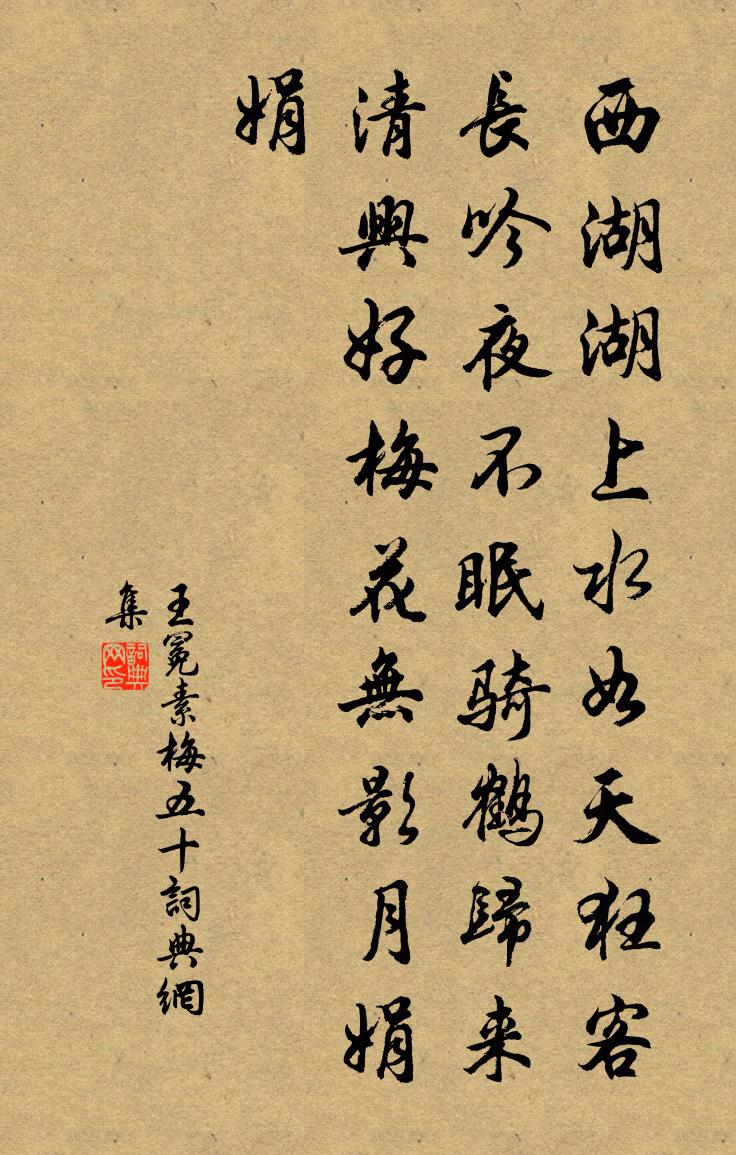 西湖湖上水如天狂客
長吟夜不眠騎鶴歸来
清興好梅花無影月娟
娟
王冕素梅五十詞典網
集
詞典网印